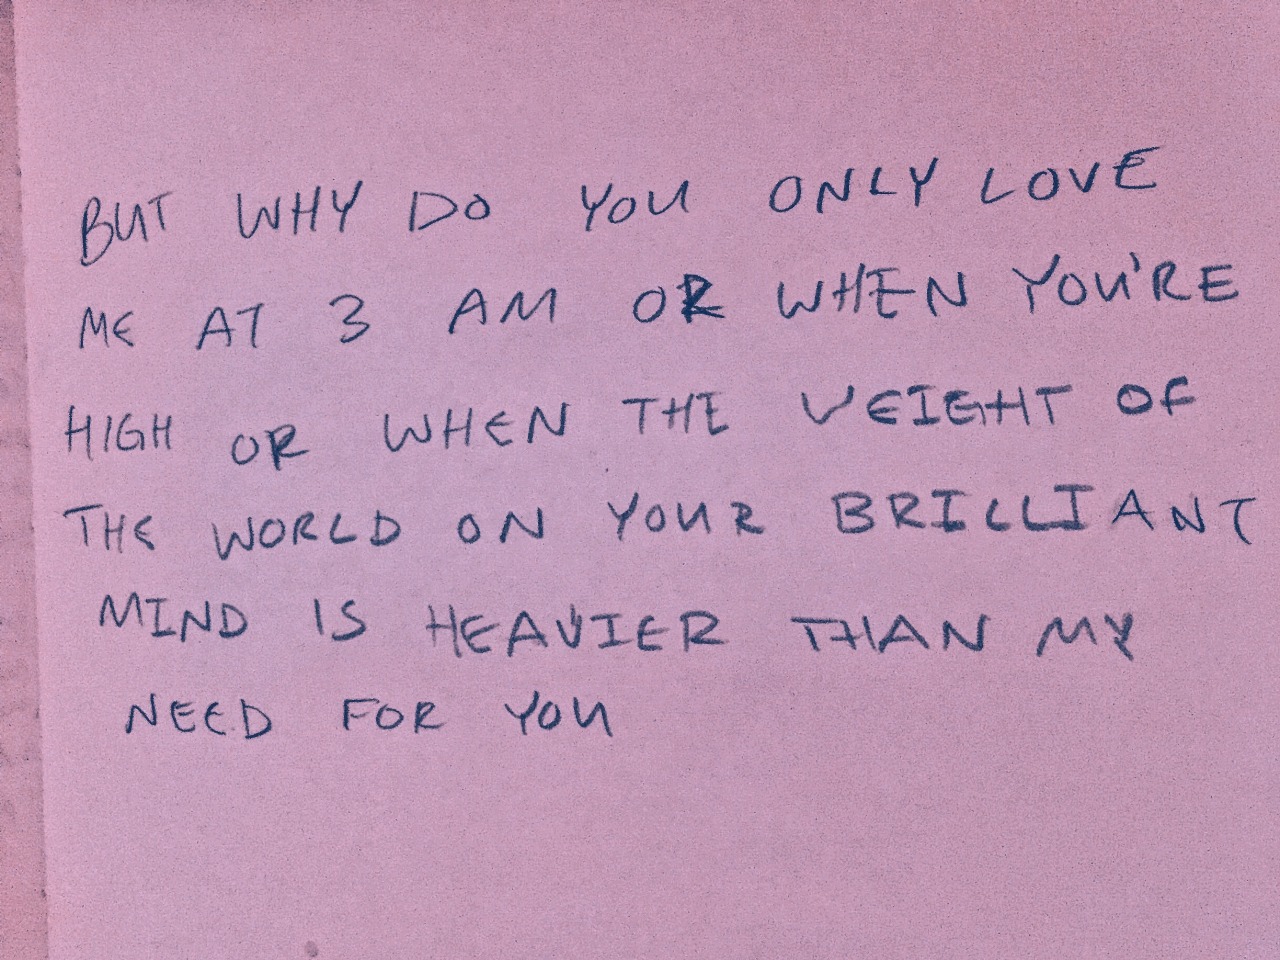 BUT WHY DO YOU ONLY LOVE
ME AT 3 AM OR WHEN YOU'RE
HIGH OR WHEN THE WEIGHT OF
THE WORLD ON YOUR BRILLIANT
MIND IS HEAVIER THAN MY
NEED FOR YOU